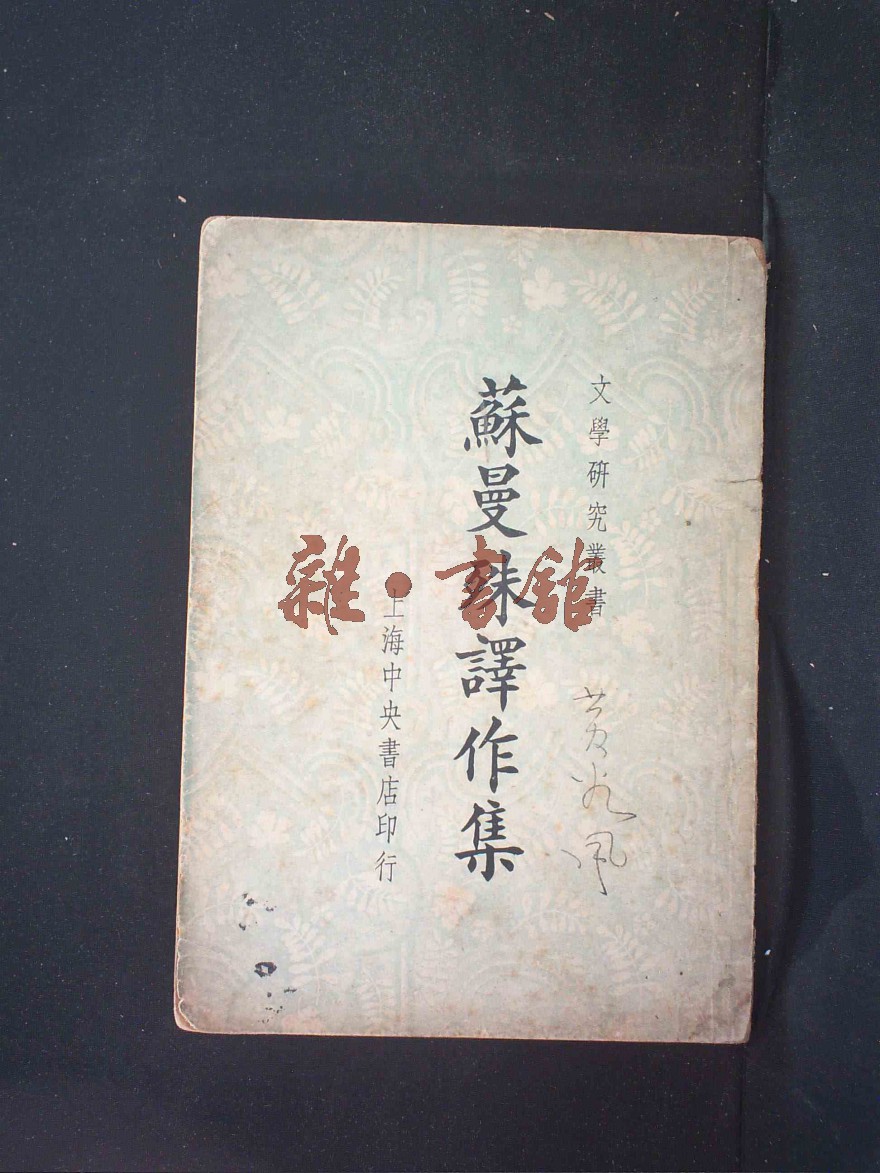 文學研究叢書
蘇曼殊譯作集
上海中央書店印行
雜·書館